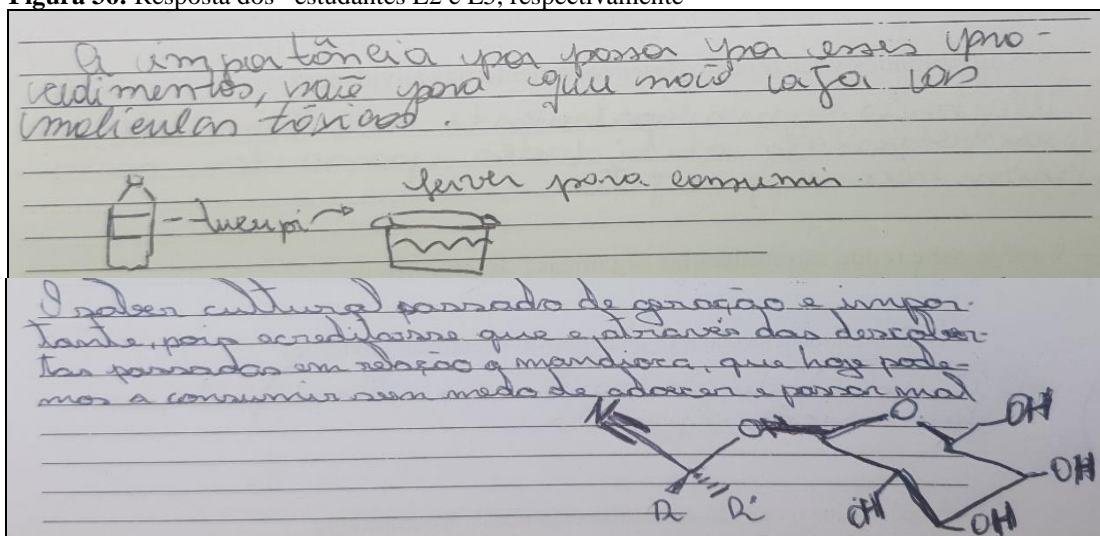 Figura 36: Resposta dos estudantes E2 e E3, respectivamente
A importância por passar por esses pro-
cedimentos, para que não haja as
moleculas tóxicas.
ferver para consumir.
-tucupi
O saber cultural passado de geração e impor-
tante, pois acreditasse que e através das descober-
tas passadas em relação a mandioca, que hoje pode-
mos a consumir sem medo de adoecer e passar mal
N
OH
O
OH
OH
R
R'
OH
OH